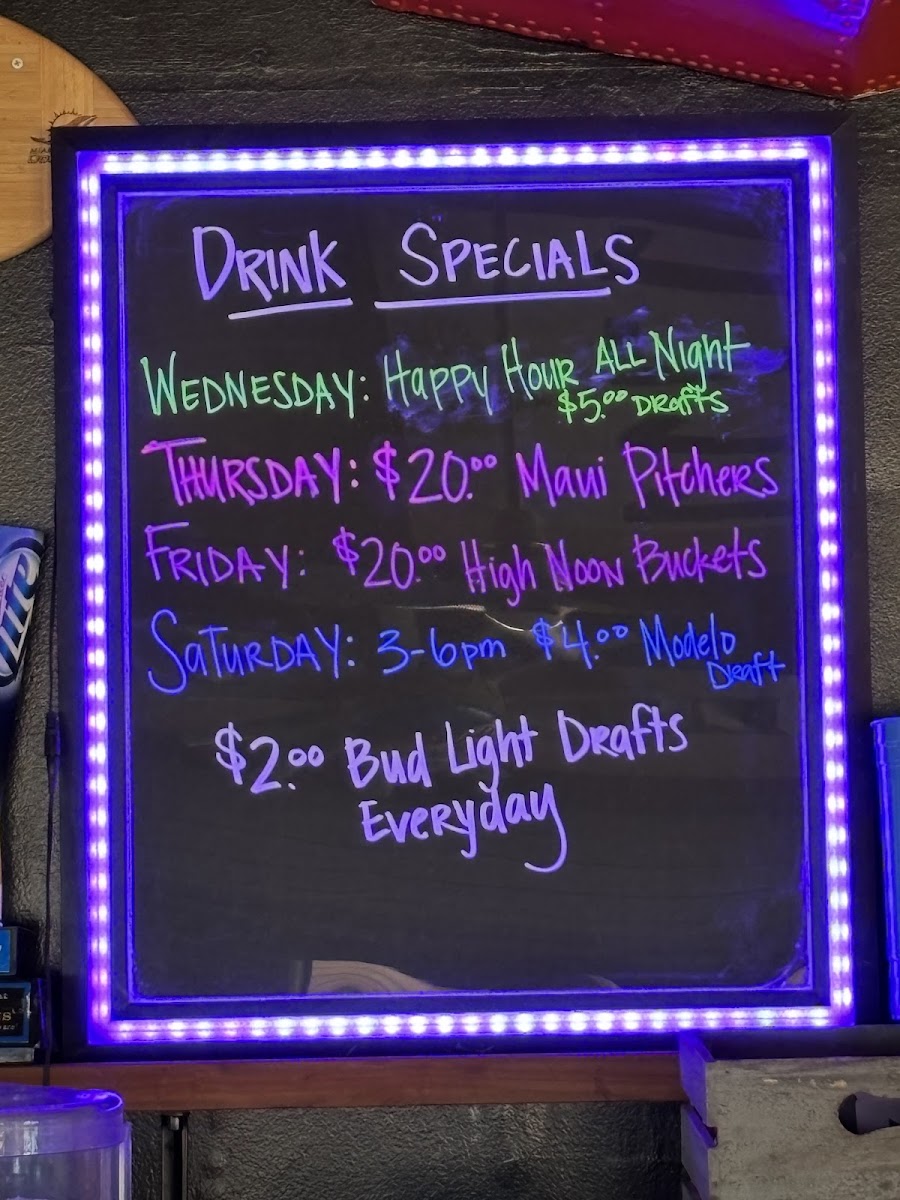 DRINK SPECIALS
WEDNESDAY: HAPPY HOUR ALL NIGHT
$5.00 DRAFTS
THURSDAY: $20.00 Maui Pitchers
FRIDAY: $20.00 High Noon Buckets
SATURDAY: 3-6pm $4.00 Modelo
Draft
$2.00 Bud Light Drafts
Everyday
Lite